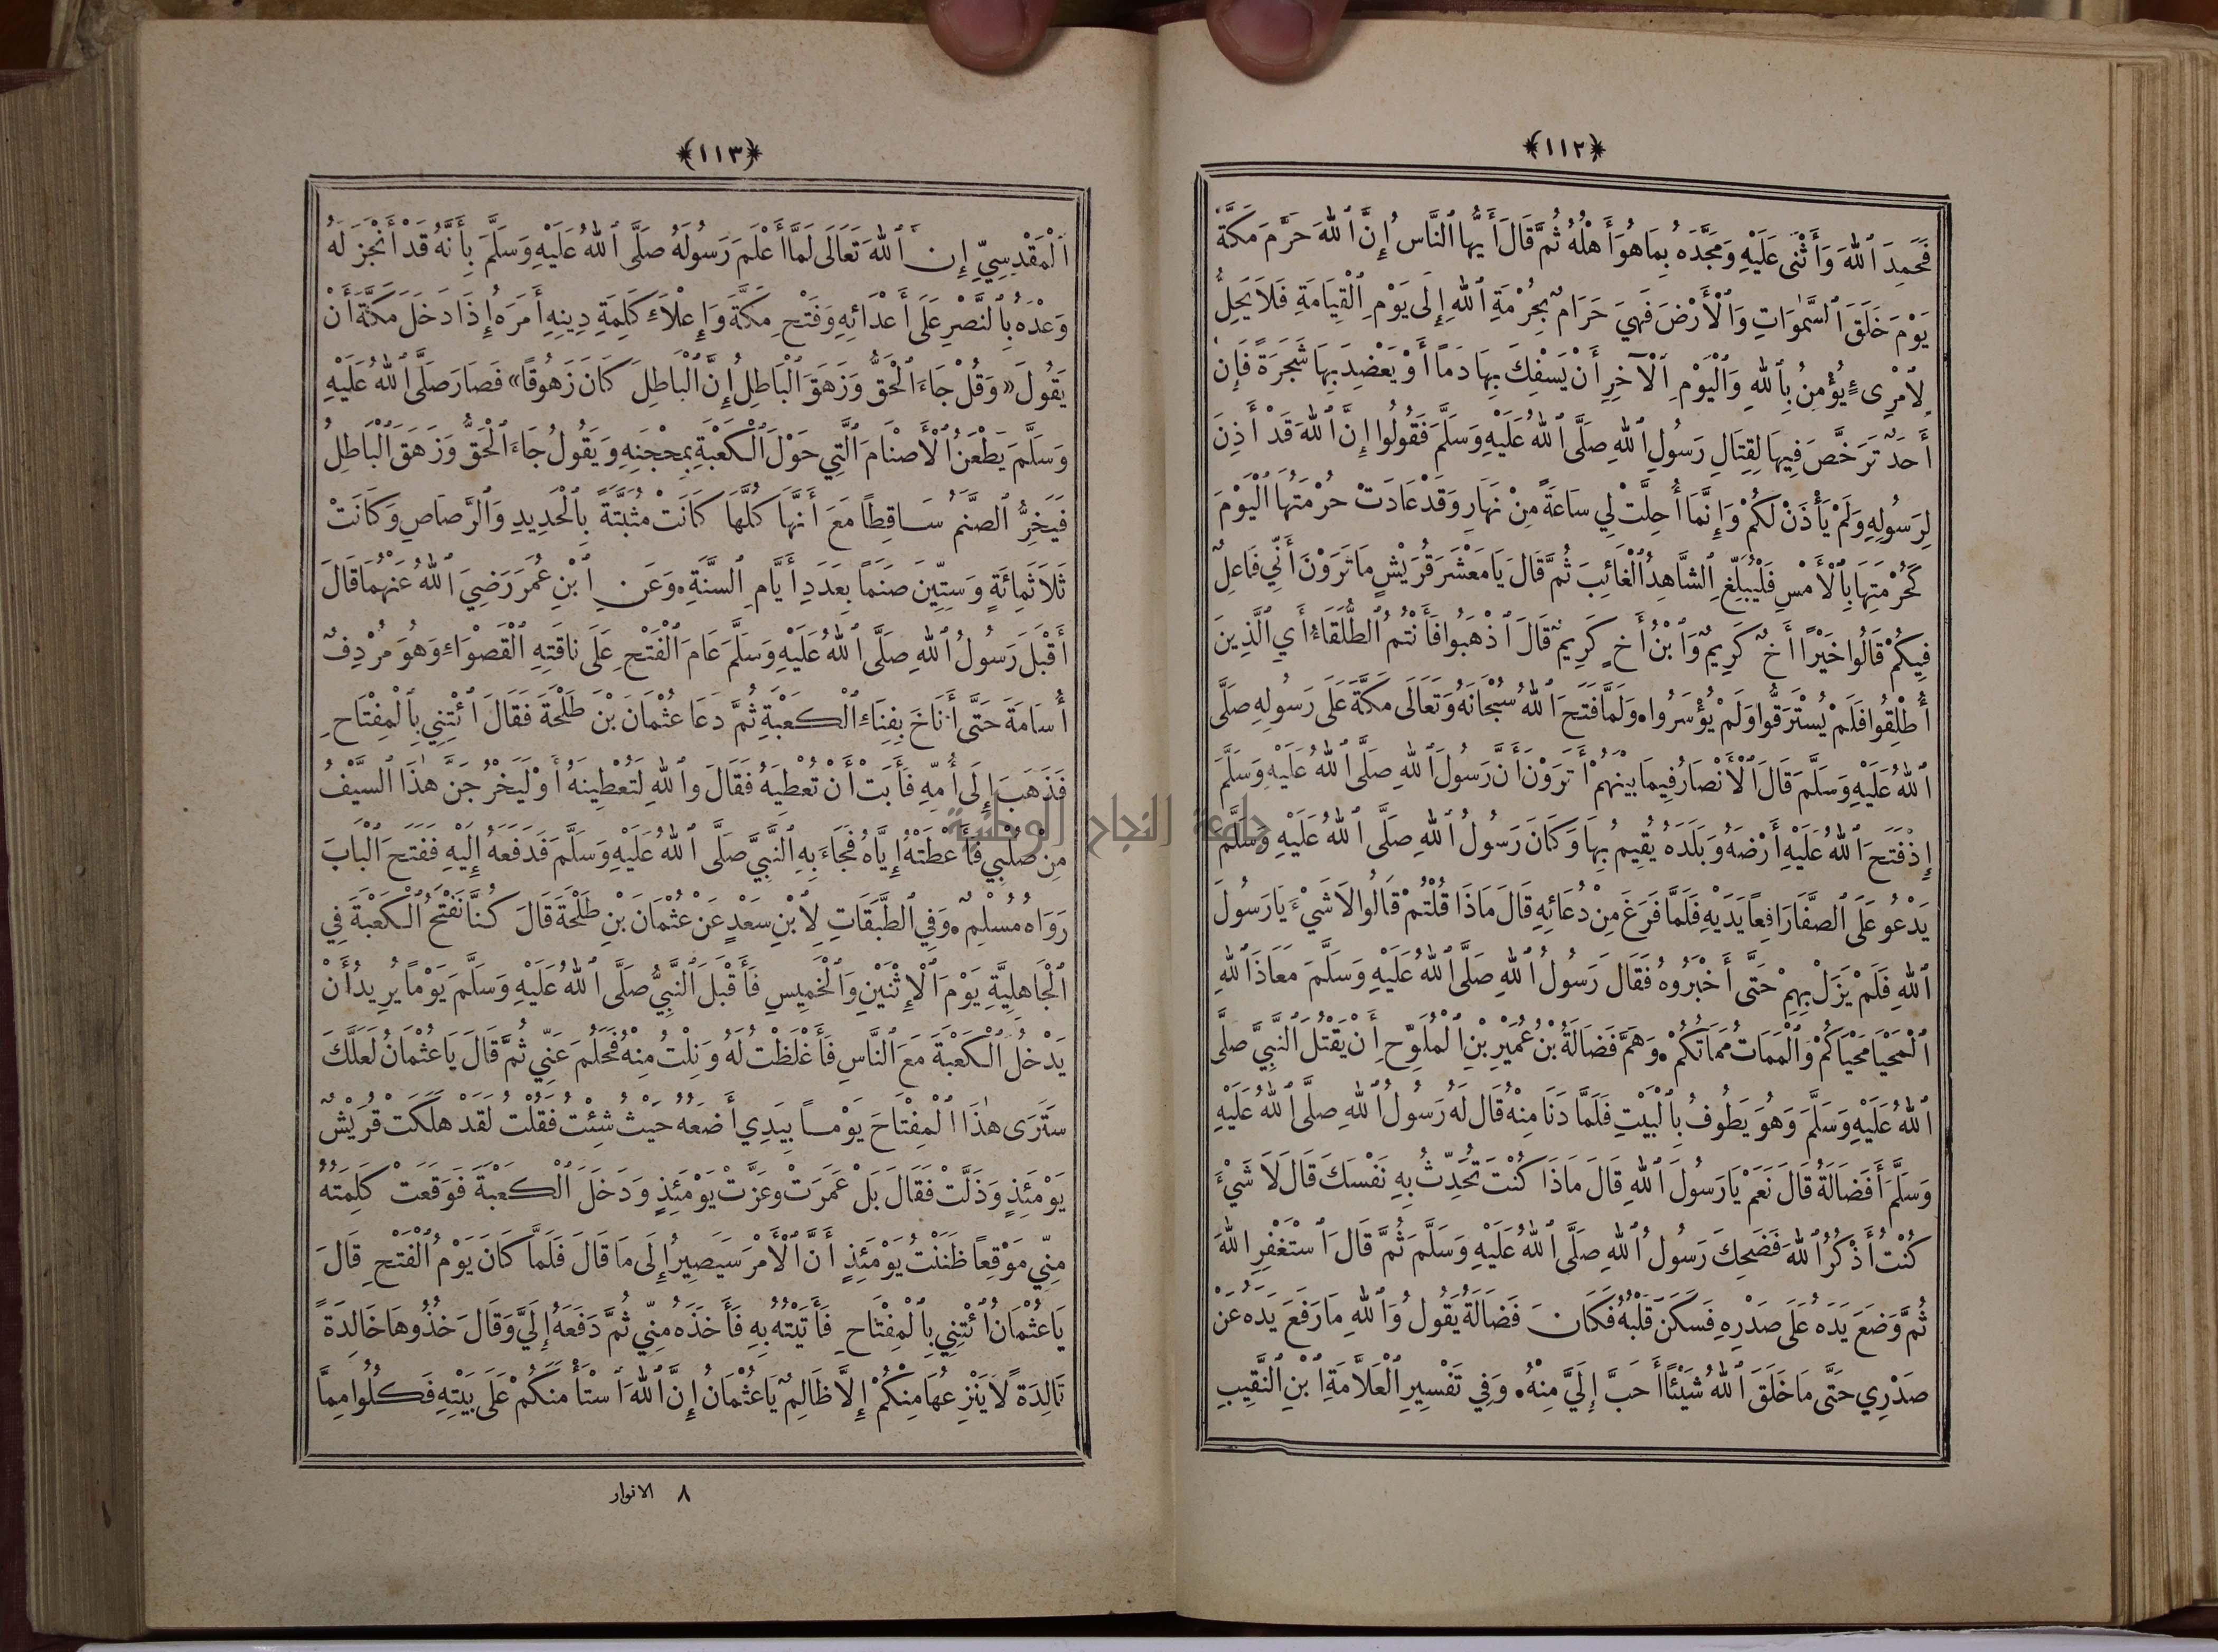 ﴿١١٢﴾
فَحَمِدَ ٱللهَ وَأَثْنَى عَلَيْهِ وَمَجَّدَهُ بِمَا هُوَ أَهْلُهُ ثُمَّ قَالَ أَيُّهَا ٱلنَّاسُ إِنَّ ٱللهَ حَرَّمَ مَكَّةَ
يَوْمَ خَلَقَ ٱلسَّمٰوَاتِ وَٱلْأَرْضَ فَهِيَ حَرَامٌ بِحُرْمَةِ ٱللهِ إِلَى يَوْمِ ٱلْقِيَامَةِ فَلَا يَحِلُّ
لِٱمْرِىءٍ يُؤْمِنُ بِٱللهِ وَٱلْيَوْمِ ٱلْآخِرِ أَنْ يَسْفِكَ بِهَا دَمًا أَوْ يَعْضِدَ بِهَا شَجَرَةً فَإِنْ
أَحَدٌ تَرَخَّصَ فِيهَا لِقِتَالِ رَسُولِ ٱللهِ صَلَّى ٱللهُ عَلَيْهِ وَسَلَّمَ فَقُولُوا إِنَّ ٱللهَ قَدْ أَذِنَ
لِرَسُولِهِ وَلَمْ يَأْذَنْ لَكُمْ وَإِنَّمَا أُحِلَّتْ لِي سَاعَةً مِنْ نَهَارٍ وَقَدْ عَادَتْ حُرْمَتُهَا ٱلْيَوْمَ
كَحُرْمَتِهَا بِٱلْأَمْسِ فَلْيُبَلِّغِ ٱلشَّاهِدُ ٱلْغَائِبَ ثُمَّ قَالَ يَا مَعْشَرَ قُرَيْشٍ مَا تَرَوْنَ أَنِّي فَاعِلٌ
فِيكُمْ قَالُوا خَيْرًا أَخٌ كَرِيمٌ وَٱبْنُ أَخٍ كَرِيمٍ قَالَ ٱذْهَبُوا فَأَنْتُمُ ٱلطُّلَقَاءُ أَيِ ٱلَّذِينَ
أُطْلِقُوا فَلَمْ يُسْتَرَقُّوا وَلَمْ يُؤْسَرُوا. وَلَمَّا فَتَحَ ٱللهُ سُبْحَانَهُ وَتَعَالَى مَكَّةَ عَلَى رَسُولِهِ صَلَّى
ٱللهُ عَلَيْهِ وَسَلَّمَ قَالَ ٱلْأَنْصَارُ فِيمَا بَيْنَهُمْ أَتَرَوْنَ أَنَّ رَسُولَ ٱللهِ صَلَّى ٱللهُ عَلَيْهِ وَسَلَّمَ
إِذْ فَتَحَ ٱللهُ عَلَيْهِ أَرْضَهُ وَبَلَدَهُ يُقِيمُ بِهَا وَكَانَ رَسُولُ ٱللهِ صَلَّى ٱللهُ عَلَيْهِ وَسَلَّمَ
يَدْعُو عَلَى ٱلصَّفَا رَافِعًا يَدَيْهِ فَلَمَّا فَرَغَ مِنْ دُعَائِهِ قَالَ مَاذَا قُلْتُمْ قَالُوا لَا شَيْءَ يَا رَسُولَ
ٱللهِ فَلَمْ يَزَلْ بِهِمْ حَتَّى أَخْبَرُوهُ فَقَالَ رَسُولُ ٱللهِ صَلَّى ٱللهُ عَلَيْهِ وَسَلَّمَ مَعَاذَ ٱللهِ
ٱلْمَحْيَا مَحْيَاكُمْ وَٱلْمَمَاتُ مَمَاتُكُمْ. وَهَمَّ فَضَالَةُ بْنُ عُمَيْرِ بْنِ ٱلْمُلَوَّحِ أَنْ يَقْتُلَ ٱلنَّبِيَّ صَلَّى
ٱللهُ عَلَيْهِ وَسَلَّمَ وَهُوَ يَطُوفُ بِٱلْبَيْتِ فَلَمَّا دَنَا مِنْهُ قَالَ لَهُ رَسُولُ ٱللهِ صَلَّى ٱللهُ عَلَيْهِ
وَسَلَّمَ أَفَضَالَةُ قَالَ نَعَمْ يَا رَسُولَ ٱللهِ قَالَ مَاذَا كُنْتَ تُحَدِّثُ بِهِ نَفْسَكَ قَالَ لَا شَيْءَ
كُنْتُ أَذْكُرُ ٱللهَ فَضَحِكَ رَسُولُ ٱللهِ صَلَّى ٱللهُ عَلَيْهِ وَسَلَّمَ ثُمَّ قَالَ ٱسْتَغْفِرِ ٱللهَ
ثُمَّ وَضَعَ يَدَهُ عَلَى صَدْرِهِ فَسَكَنَ قَلْبُهُ فَكَانَ فَضَالَةُ يَقُولُ وَٱللهِ مَا رَفَعَ يَدَهُ عَنْ
صَدْرِي حَتَّى مَا خَلَقَ ٱللهُ شَيْئًا أَحَبَّ إِلَيَّ مِنْهُ. وَفِي تَفْسِيرِ ٱلْعَلَّامَةِ ٱبْنِ ٱلنَّقِيبِ
﴿١١٣﴾
ٱلْمَقْدِسِيِّ إِنَّ ٱللهَ تَعَالَى لَمَّا أَعْلَمَ رَسُولَهُ صَلَّى ٱللهُ عَلَيْهِ وَسَلَّمَ بِأَنَّهُ قَدْ أَنْجَزَ لَهُ
وَعْدَهُ بِٱلنَّصْرِ عَلَى أَعْدَائِهِ وَفَتْحِ مَكَّةَ وَإِعْلَاءِ كَلِمَةِ دِينِهِ أَمَرَهُ إِذَا دَخَلَ مَكَّةَ أَنْ
يَقُولَ «وَقُلْ جَاءَ ٱلْحَقُّ وَزَهَقَ ٱلْبَاطِلُ إِنَّ ٱلْبَاطِلَ كَانَ زَهُوقًا» فَصَارَ صَلَّى ٱللهُ عَلَيْهِ
وَسَلَّمَ يَطْعَنُ ٱلْأَصْنَامَ ٱلَّتِي حَوْلَ ٱلْكَعْبَةِ بِمِحْجَنِهِ وَيَقُولُ جَاءَ ٱلْحَقُّ وَزَهَقَ ٱلْبَاطِلُ
فَيَخِرُّ ٱلصَّنَمُ سَاقِطًا مَعَ أَنَّهَا كُلَّهَا كَانَتْ مُثَبَّتَةً بِٱلْحَدِيدِ وَٱلرَّصَاصِ وَكَانَتْ
ثَلَاثَمِائَةٍ وَسِتِّينَ صَنَمًا بِعَدَدِ أَيَّامِ ٱلسَّنَةِ. وَعَنِ ٱبْنِ عُمَرَ رَضِيَ ٱللهُ عَنْهُمَا قَالَ
أَقْبَلَ رَسُولُ ٱللهِ صَلَّى ٱللهُ عَلَيْهِ وَسَلَّمَ عَامَ ٱلْفَتْحِ عَلَى نَاقَتِهِ ٱلْقَصْوَاءِ وَهُوَ مُرْدِفٌ
أُسَامَةَ حَتَّى أَنَاخَ بِفِنَاءِ ٱلْكَعْبَةِ ثُمَّ دَعَا عُثْمَانَ بْنَ طَلْحَةَ فَقَالَ ٱئْتِنِي بِٱلْمِفْتَاحِ
فَذَهَبَ إِلَى أُمِّهِ فَأَبَتْ أَنْ تُعْطِيَهُ فَقَالَ وَٱللهِ لَتُعْطِينَهُ أَوْ لَيَخْرُجَنَّ هٰذَا ٱلسَّيْفُ
مِنْ صُلْبِي فَأَعْطَتْهُ إِيَّاهُ فَجَاءَ بِهِ ٱلنَّبِيَّ صَلَّى ٱللهُ عَلَيْهِ وَسَلَّمَ فَدَفَعَهُ إِلَيْهِ فَفَتَحَ ٱلْبَابَ
رَوَاهُ مُسْلِمٌ. وَفِي ٱلطَّبَقَاتِ لِٱبْنِ سَعْدٍ عَنْ عُثْمَانَ بْنِ طَلْحَةَ قَالَ كُنَّا نَفْتَحُ ٱلْكَعْبَةَ فِي
ٱلْجَاهِلِيَّةِ يَوْمَ ٱلْإِثْنَيْنِ وَٱلْخَمِيسِ فَأَقْبَلَ ٱلنَّبِيُّ صَلَّى ٱللهُ عَلَيْهِ وَسَلَّمَ يَوْمًا يُرِيدُ أَنْ
يَدْخُلَ ٱلْكَعْبَةَ مَعَ ٱلنَّاسِ فَأَغْلَظْتُ لَهُ وَنِلْتُ مِنْهُ فَحَلُمَ عَنِّي ثُمَّ قَالَ يَا عُثْمَانُ لَعَلَّكَ
سَتَرَى هٰذَا ٱلْمِفْتَاحَ يَوْمًا بِيَدِي أَضَعُهُ حَيْثُ شِئْتُ فَقُلْتُ لَقَدْ هَلَكَتْ قُرَيْشٌ
يَوْمَئِذٍ وَذَلَّتْ فَقَالَ بَلْ عَمَرَتْ وَعَزَّتْ يَوْمَئِذٍ وَدَخَلَ ٱلْكَعْبَةَ فَوَقَعَتْ كَلِمَتُهُ
مِنِّي مَوْقِعًا ظَنَنْتُ يَوْمَئِذٍ أَنَّ ٱلْأَمْرَ سَيَصِيرُ إِلَى مَا قَالَ فَلَمَّا كَانَ يَوْمُ ٱلْفَتْحِ قَالَ
يَا عُثْمَانُ ٱئْتِنِي بِٱلْمِفْتَاحِ فَأَتَيْتُهُ بِهِ فَأَخَذَهُ مِنِّي ثُمَّ دَفَعَهُ إِلَيَّ وَقَالَ خُذُوهَا خَالِدَةً
تَالِدَةً لَا يَنْزِعُهَا مِنْكُمْ إِلَّا ظَالِمٌ يَا عُثْمَانُ إِنَّ ٱللهَ ٱسْتَأْمَنَكُمْ عَلَى بَيْتِهِ فَكُلُوا مِمَّا
٨ الانوار
جامعة النجاح الوطنية